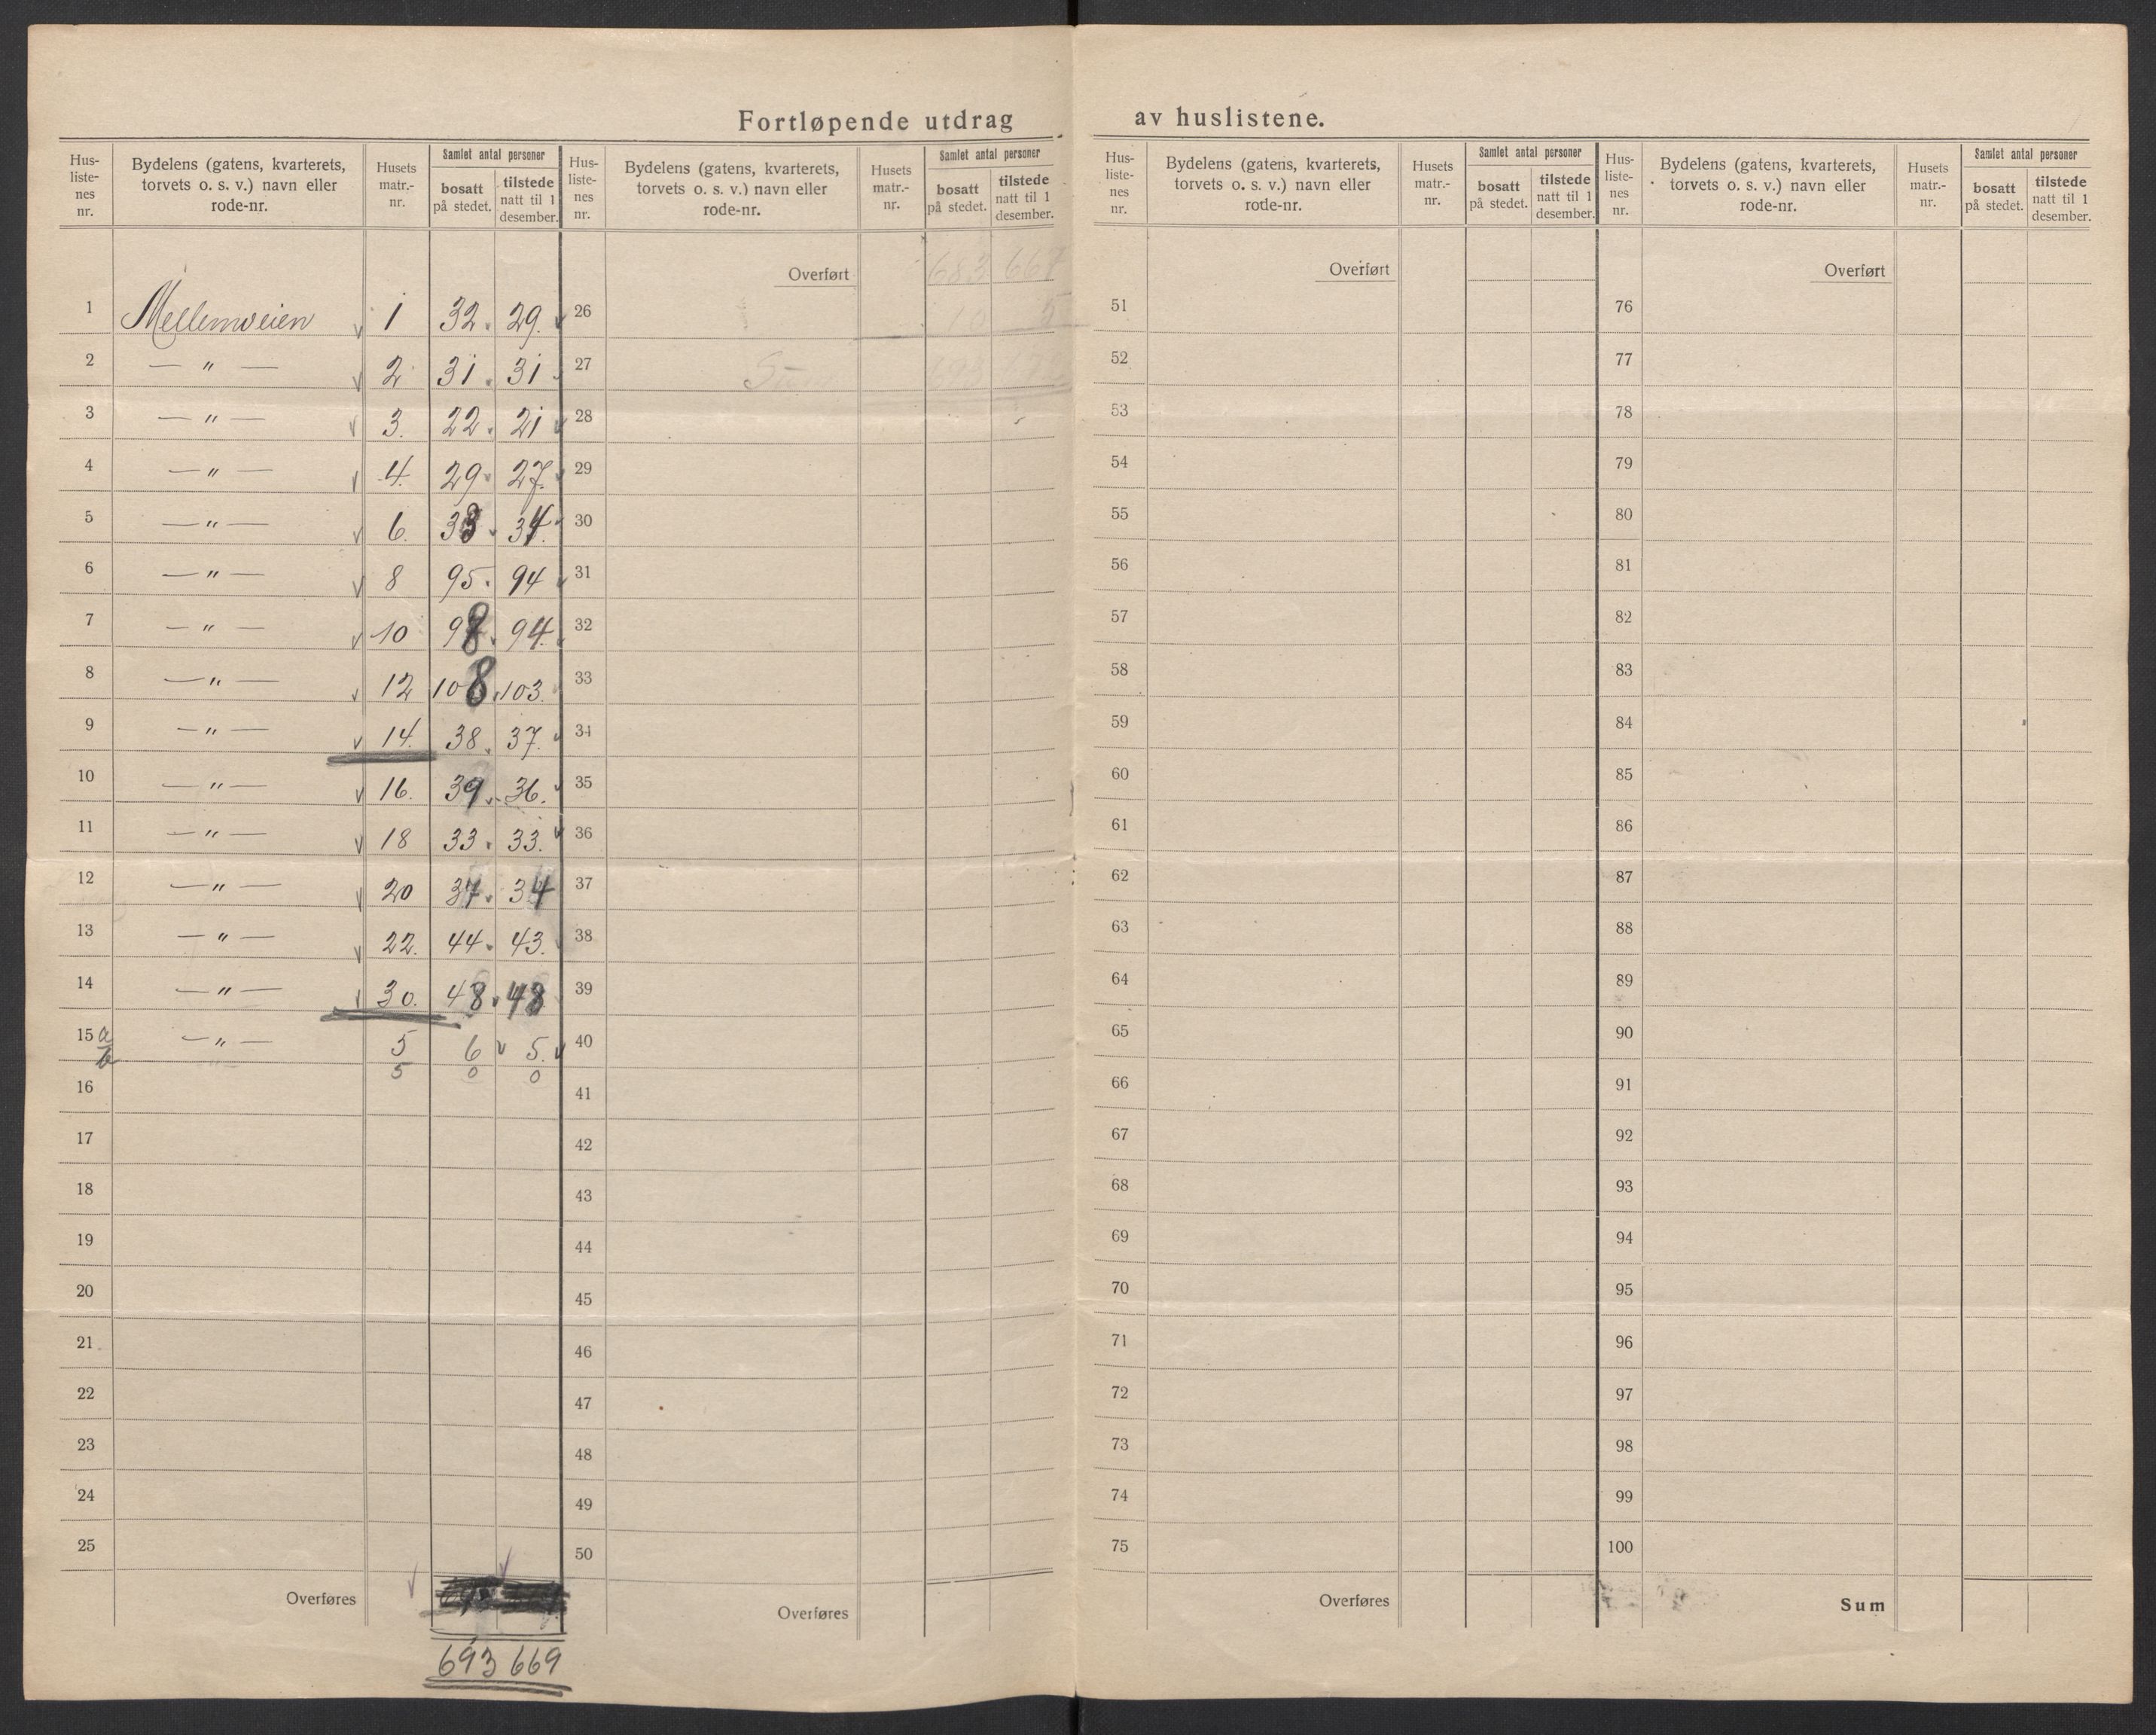 Fortløpende utdrag av huslistene.
Hus-liste-nes nr. Bydelens (gatens, kvarterets, torvets o. s. v.) navn eller rode-nr. Husets matr.-nr. Samlet antal personer bosatt på stedet. tilstede natt til 1 desember.
1 Mellemveien 1 32 29
2 — " — 2 31 31
3 — " — 3. 22 21
4 — " — 4. 29 27.
5 — " — 6. 33 34.
6 — " — 8 95 94
7 — " — 10 98 94.
8 — " — 12 108 103.
9 — " — 14. 38 37.
10 — " — 16. 39 36.
11 — " — 18 33 33.
12 — " — 20 37 34
13 — " — 22. 44 43.
14 — " — 30. 48 48
15 a — " — 5 6 5.
b 5 0 0
16
17
18
19
20
21
22
23
24
25
Overføres
693 669
Hus-liste-nes nr. Bydelens (gatens, kvarterets, torvets o. s. v.) navn eller rode-nr. Husets matr.-nr. Samlet antal personer bosatt på stedet. tilstede natt til 1 desember.
Overført 683 664
26 10 5
27
28
29
30
31
32
33
34
35
36
37
38
39
40
41
42
43
44
45
46
47
48
49
50
Overføres
Hus-liste-nes nr. Bydelens (gatens, kvarterets, torvets o. s. v.) navn eller rode-nr. Husets matr.-nr. Samlet antal personer bosatt på stedet. tilstede natt til 1 desember.
Overført
51
52
53
54
55
56
57
58
59
60
61
62
63
64
65
66
67
68
69
70
71
72
73
74
75
Overføres
Hus-liste-nes nr. Bydelens (gatens, kvarterets, torvets o. s. v.) navn eller rode-nr. Husets matr.-nr. Samlet antal personer bosatt på stedet. tilstede natt til 1 desember.
Overført
76
77
78
79
80
81
82
83
84
85
86
87
88
89
90
91
92
93
94
95
96
97
98
99
100
Sum